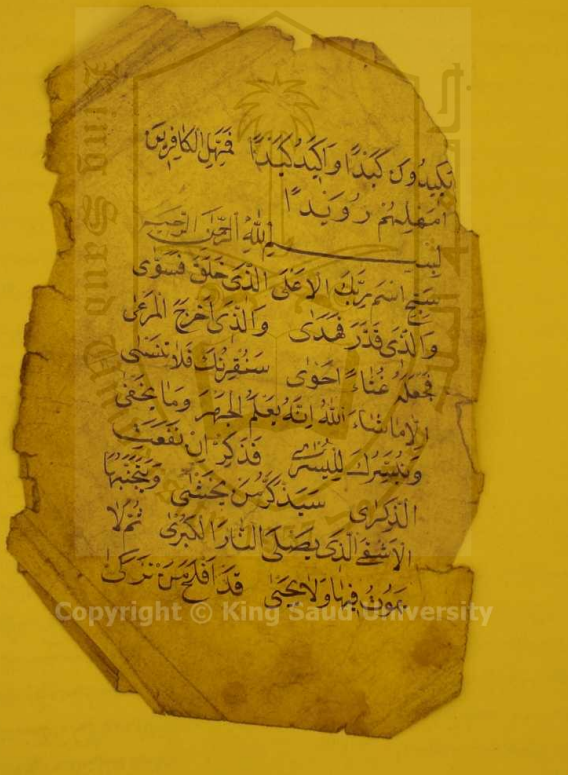 يَكِيدُونَ كَيْدًا وَاَكِيدُ كَيْدًا فَمَهِّلِ الْكَافِرِينَ
اَمْهِلْهُمْ رُوَيْدًا
بِسْمِ اللهِ الرَّحْمٰنِ الرَّحِيمِ
سَبِّحِ اسْمَ رَبِّكَ الْاَعْلَى الَّذِى خَلَقَ فَسَوّٰى
وَالَّذِى قَدَّرَ فَهَدٰى وَالَّذِى اَخْرَجَ الْمَرْعٰى
فَجَعَلَهُ غُثَاءً اَحْوٰى سَنُقْرِئُكَ فَلَا تَنْسٰى
اِلَّا مَا شَاءَ اللهُ اِنَّهُ يَعْلَمُ الْجَهْرَ وَمَا يَخْفٰى
وَنُيَسِّرُكَ لِلْيُسْرٰى فَذَكِّرْ اِنْ نَفَعَتِ
الذِّكْرٰى سَيَذَّكَّرُ مَنْ يَخْشٰى وَيَتَجَنَّبُهَا
الْاَشْقَى الَّذِى يَصْلَى النَّارَ الْكُبْرٰى ثُمَّ لَا
يَمُوتُ فِيهَا وَلَا يَحْيٰى قَدْ اَفْلَحَ مَنْ تَزَكّٰى
Copyright © King Saud University
King Saud University